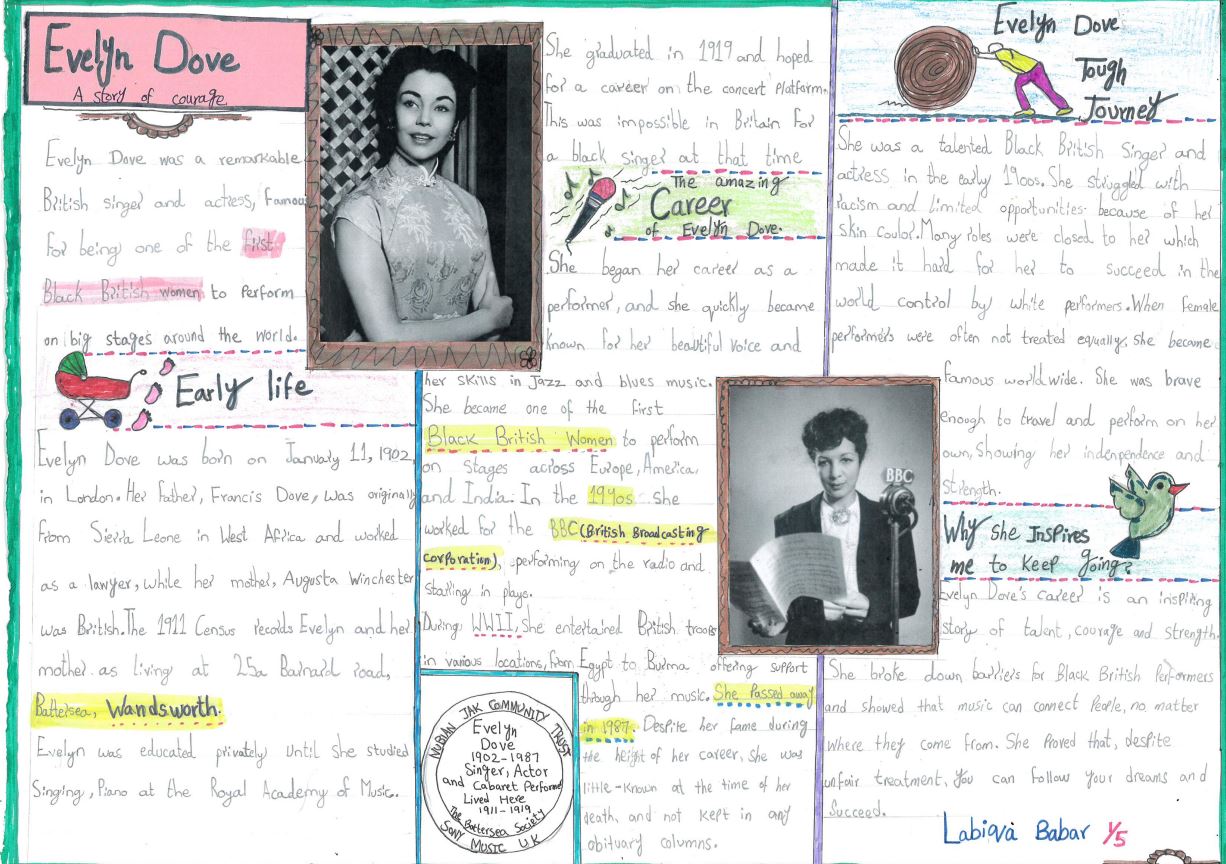 Evelyn Dove
A story of courage
Evelyn Dove was a remarkable
British singer and actress, famous
for being one of the first
Black British women to perform
on big stages around the world.
Early life
Evelyn Dove was born on January 11, 1902,
in London. Her father, Francis Dove, was originally
from Sierra Leone in West Africa and worked
as a lawyer, while her mother, Augusta Winchester
was British. The 1911 Census records Evelyn and her
mother as living at 25a Barnard road,
Battersea, Wandsworth.
Evelyn was educated privately until she studied
Singing, Piano at the Royal Academy of Music.
She graduated in 1919 and hoped
for a career on the concert Platform.
This was impossible in Britain for
a black singer at that time
The amazing
Career
of Evelyn Dove.
She began her career as a
performer, and she quickly became
known for her beautiful voice and
her skills in Jazz and blues music.
She became one of the first
Black British Women to perform
on stages across Europe, America,
and India. In the 1940s she
worked for the BBC (British Broadcasting
corporation), performing on the radio and
starring in plays.
During WWII, She entertained British troops
in various locations, from Egypt to Burma offering support
through her music. She Passed away
in 1987. Despite her fame during
the height of her career, she was
little-known at the time of her
death, and not kept in any
obituary columns.
NUBIAN JAK COMMUNITY TRUST
Evelyn
Dove
1902-1987
Singer, Actor
and Cabaret Performe
Lived Here
1911-1919
The Battersea Society
SONY MUSIC UK
BBC
Evelyn Dove
Tough
Journey
She was a talented Black British Singer and
actress in the early 1900s. She struggled with
racism and limited opportunities because of her
skin coulor. Many roles were closed to her which
made it hard for her to succeed in the
world control by white performers. When female
performers were often not treated equally, she became
famous worldwide. She was brave
enough to travel and perform on her
own, Showing her indenpendence and
strength.
Why she Inspires
me to keep going?
Evelyn Dove's career is an inspiring
story of talent, courage and strength.
She broke down barriers for Black British Performers
and showed that music can connect People, no matter
where they come from. She Proved that, despite
unfair treatment, You can follow your dreams and
Succeed.
Labiqa Babar Y5